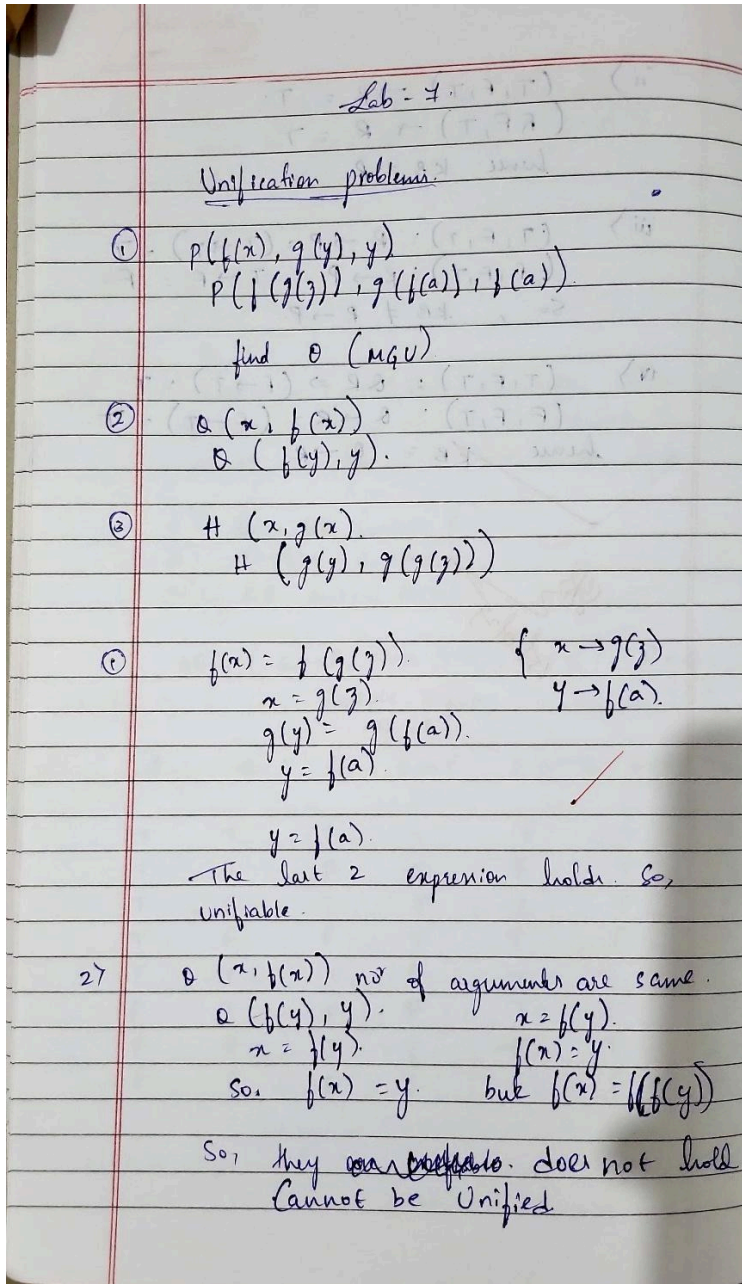 Lab - 7
Unification problems.
① P(f(x), g(y), y)
P(f(g(z)), g(f(a)), f(a))
find θ (MGU)
② Q (x, f(x))
Q (f(y), y).
③ H (x, g(x).
H (g(y), g(g(z)))
① f(x) = f(g(z)). { x → g(z)
x = g(z). y → f(a).
g(y) = g(f(a)).
y = f(a).
y = f(a).
The last 2 expression holds. So,
unifiable.
2) Q (x, f(x)) no. of arguments are same.
Q (f(y), y). x = f(y).
x = f(y). f(x) = y.
So, f(x) = y. but f(x) = f(f(y))
So, they does not hold
Cannot be Unified